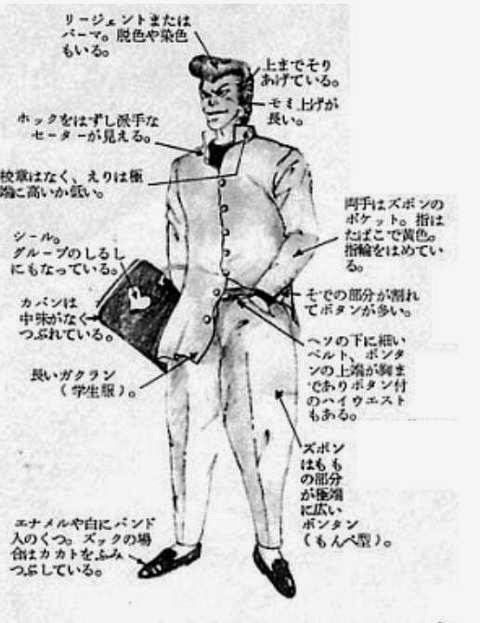 リージェントまたは
パーマ。脱色や染色
もいる。
上までそり
あげている。
モミ上げが
長い。
ホックをはずし派手な
セーターが見える。
校章はなく、えりは極
端に高いか低い。
両手はズボンの
ポケット。指は
たばこで黄色。
指輪をはめてい
る。
シール。
グループのしるし
にもなっている。
カバンは
中味がなく
つぶれている。
そでの部分が割れ
てボタンが多い。
ヘソの下に細い
ベルト、ボンタ
ンの上端が胸ま
でありボタン付
のハイウエスト
もある。
長いガクラン
(学生服)。
ズボン
はもも
の部分
が極端
に広い
ボンタン
(もんぺ型)。
エナメルや白にバンド
入のくつ。ズックの場
合はカカトをふみ
つぶしている。